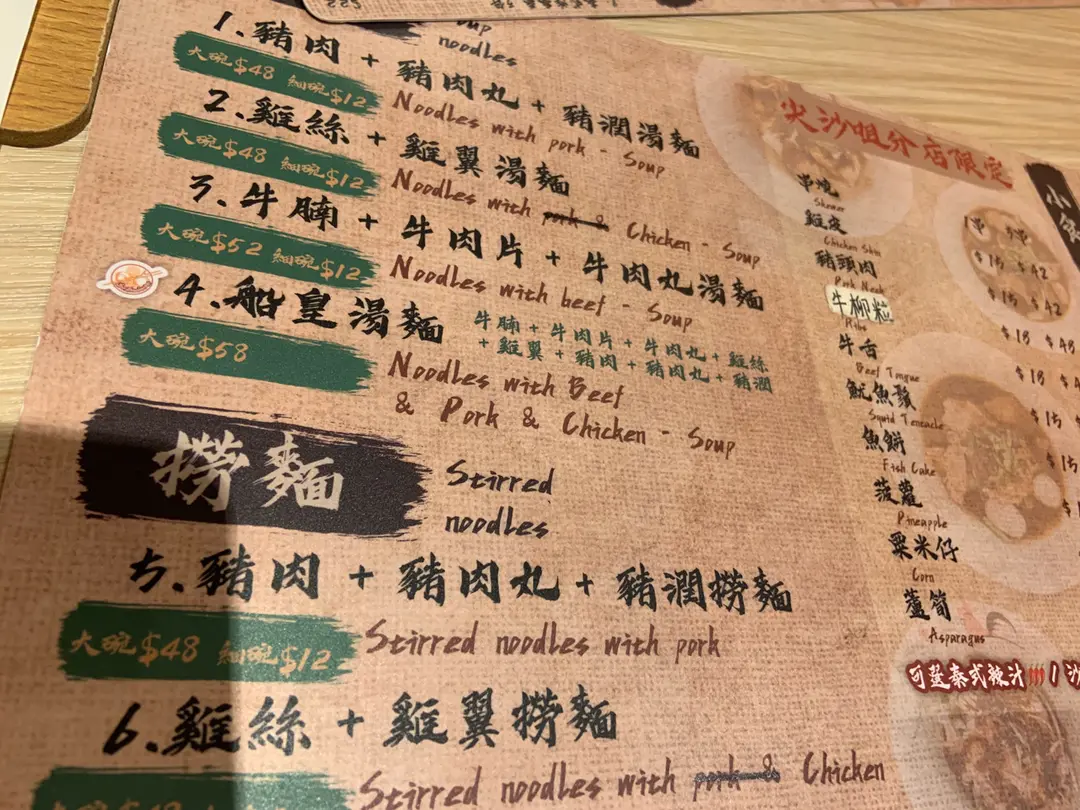 oup
noodles
1.豬肉 + 豬肉丸 + 豬潤湯麵
大碗$48 細碗$12
Noodles with pork - Soup
2.雞絲 + 雞翼湯麵
大碗$48 細碗$12
Noodles with pork & Chicken - Soup
3.牛腩 + 牛肉片 + 牛肉丸湯麵
大碗$52 細碗$12
Noodles with beef - Soup
4.船皇湯麵
牛腩 + 牛肉片 + 牛肉丸 + 雞絲
+ 雞翼 + 豬肉 + 豬肉丸 + 豬潤
大碗$58
Noodles with Beef
& Pork & Chicken - Soup
撈麵
Stirred
noodles
5.豬肉 + 豬肉丸 + 豬潤撈麵
大碗$48 細碗$12
Stirred noodles with pork
6.雞絲 + 雞翼撈麵
Stirred noodles with pork & Chicken
尖沙咀分店限定
串燒
Skewer
1串 3串
雞皮
$15 $42
Chicken Skin
豬頸肉
$15 $42
Pork Neck
牛柳粒
$18 $48
Ribs
牛舌
$18
Beef Tongue
魷魚鬚
$15
Squid Tentacle
魚餅
$15
Fish Cake
菠蘿
Pineapple
粟米仔
Corn
蘆筍
Asparagus
小食